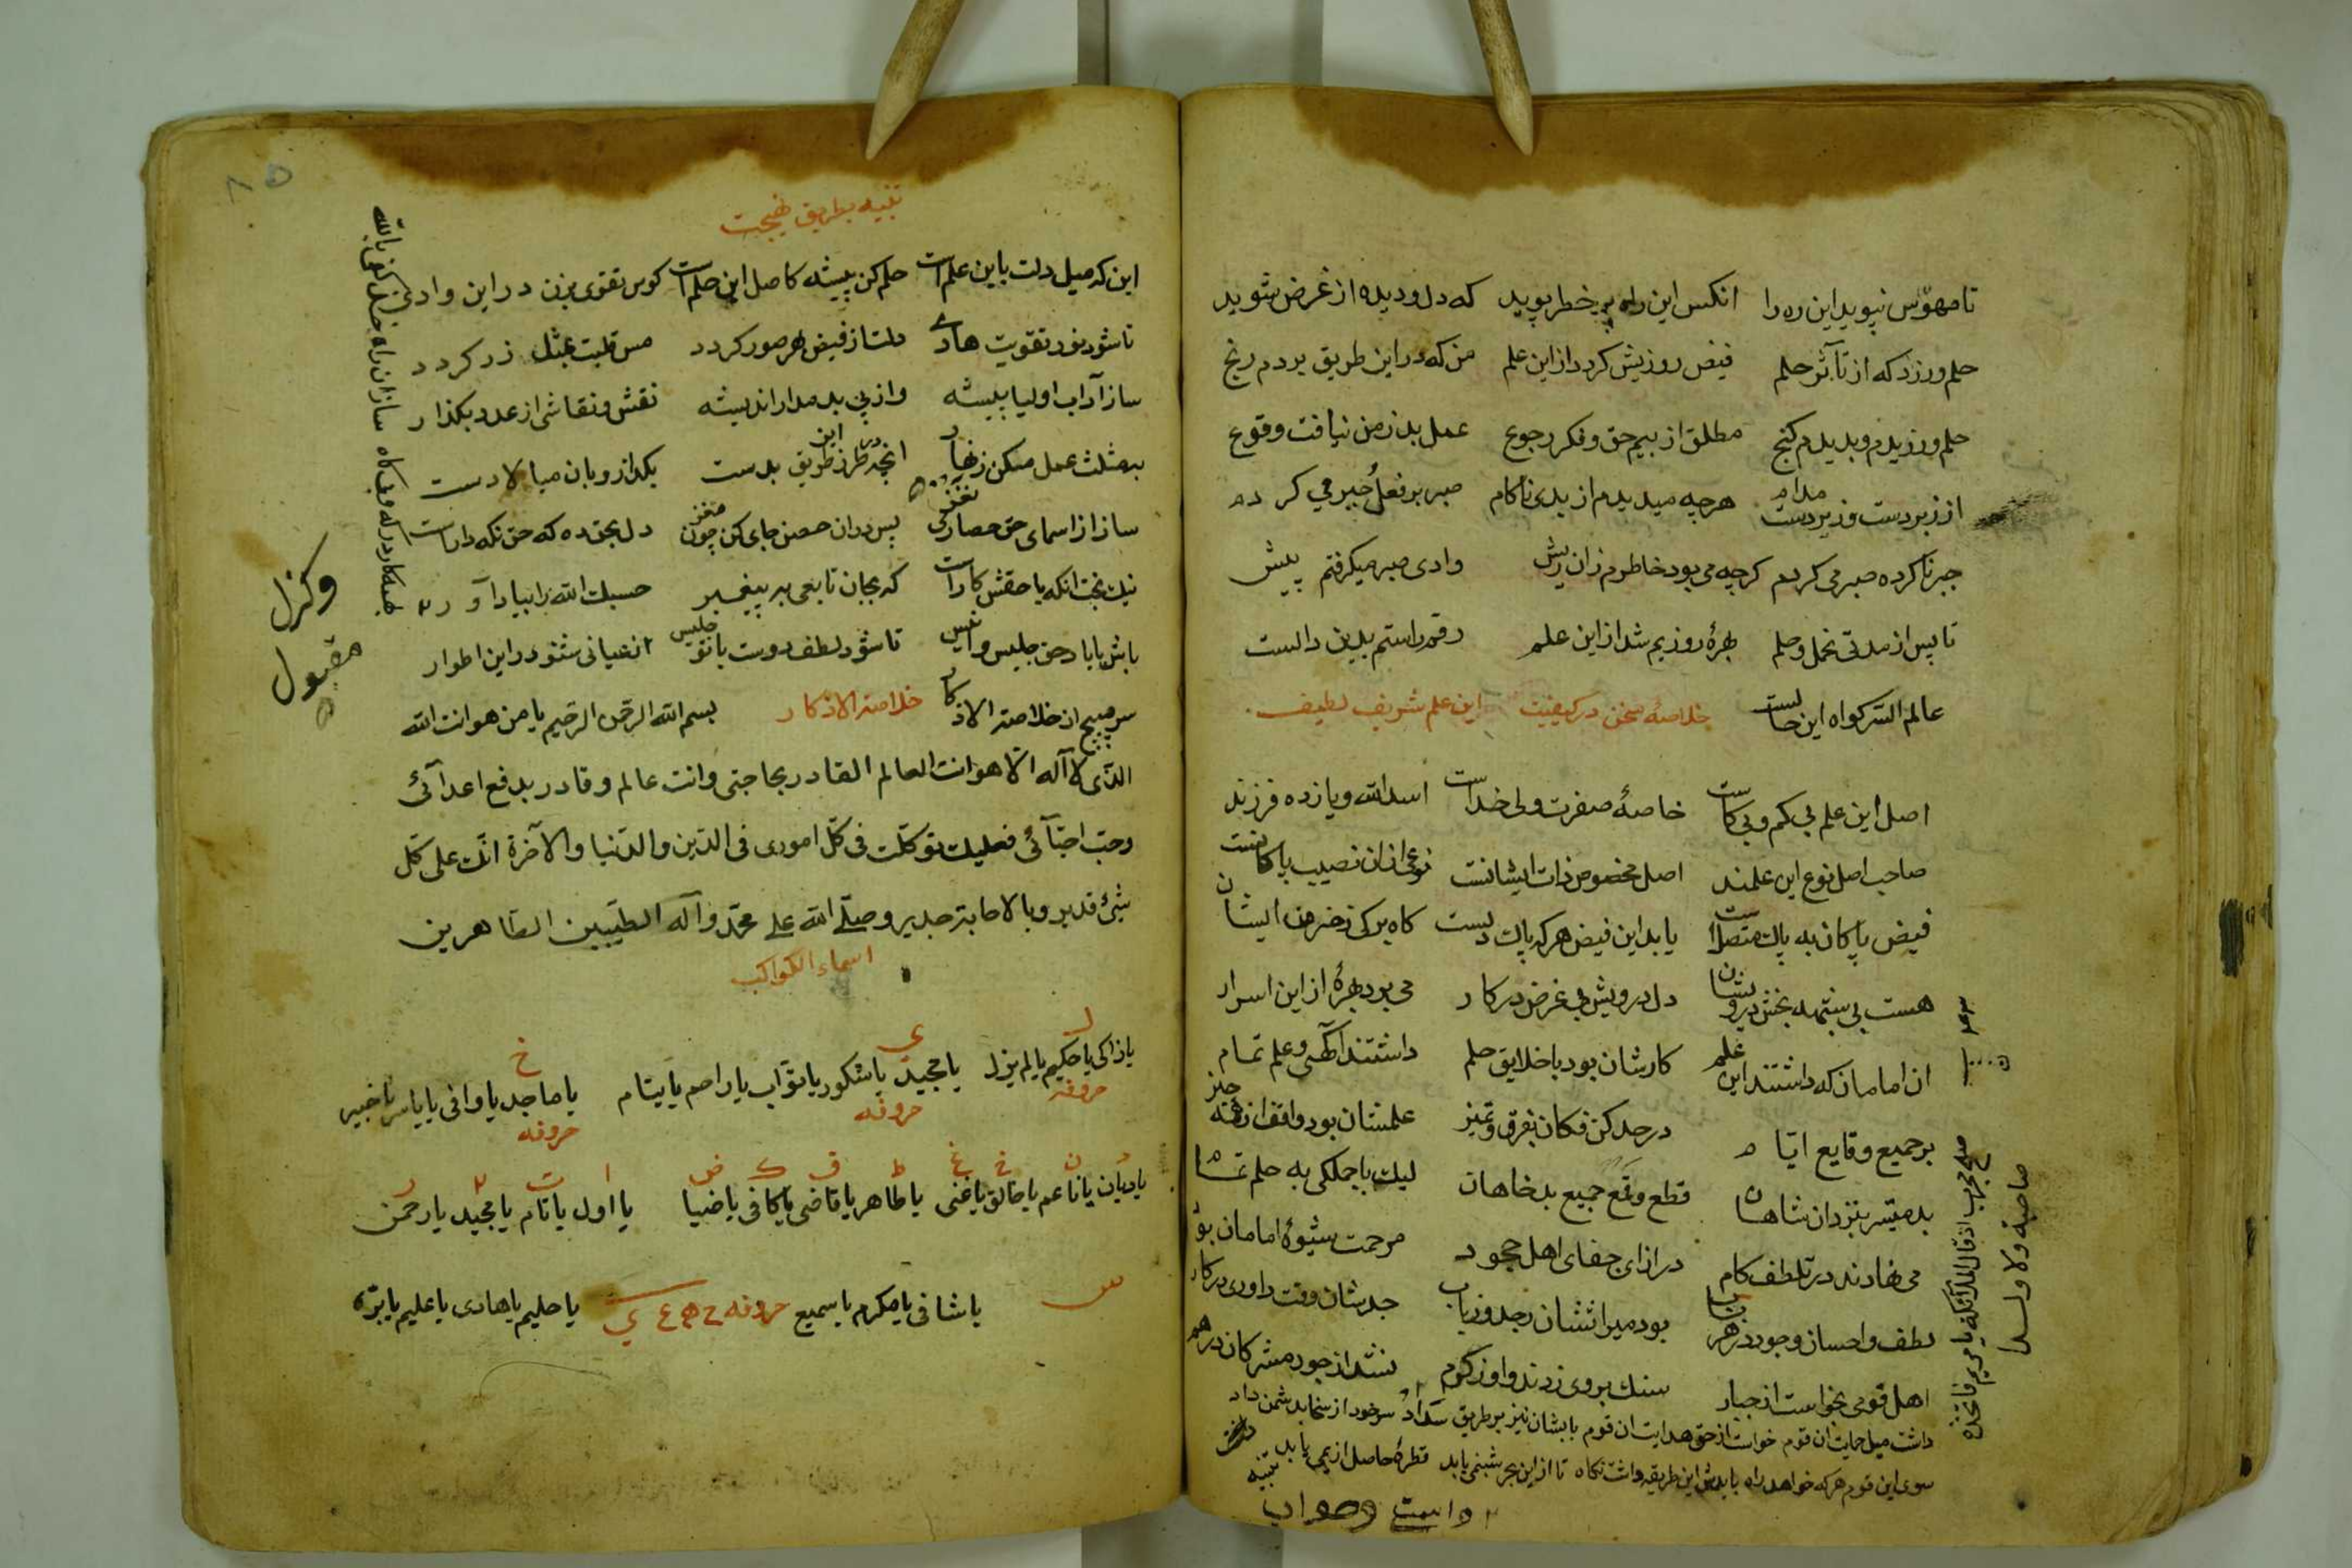 تا مهوّس نپوید این ره را انکس این راه پر خطر پوید که دل و دیده از غرض شوید
حلم ورزد که از تأثر حلم فیض روزیش کردد از این علم من که در این طریق بردم رنج
حلم ورزیدم و بدیدم کنج مطلق از بیم حق و فکر رجوع عمل بد ز من نیافت وقوع
از زبردست و زیردست مدام هرچه میدیدم از بدی ناکام صبر بر فعل جبر می کردم
جبر ناکرده صبر می کردم کرچه می بود خاطرم زان ریش وادی صبر میکرفتم پیش
تا پس از مدتی تحمل و حلم بهرۀ روزیم شد از این علم رقم راستم بدین دالست
عالم السّر کواه این حالست خلاصۀ سخن در کیفیت این علم شریف لطیف
اصل این علم بی کم و بی کاست خاصۀ صفرت ولی خداست اسدالله و یازده فرزند
صاحب اصل نوع این علمند اصل مخصوص ذات ایشانست نوعی از ان نصیب پاکانست
فیض پاکان به پاک متصل است یابد این فیض هر که پاک دلست کاه برکی ز خرمن ایشان
هست بی شبهه بخش درویشان دل درویش بی غرض در کار می برد بهرۀ از این اسرار
ان امامان که داشتند این علم کارشان بود با خلایق حلم داشتند آکهی و علم تمام
بر جمیع وقایع ایّام در حد کن فکان بفرق و تمیز علمشان بود واقف از همه چیز
بد میّسر بنزد ان شاهان قطع و قمع جمیع بدخواهان لیک با جملکی به حلم تمام
می نهادند در تلطف کام در ازای جفای اهل جحود مرحمت شیوۀ امامان بود
لطف و احسان و جود در هر باب بود میراثشان ز جد و ز باب جدشان وقت داوری در کار
اهل قومی بخواست از جبار سنک بر وی زدند و او ز کرم نشد از جور مشرکان درهم
داشت میل حمایت ان قوم خواست از حق هدایت ان قوم بابشان نیز بر طریق سداد سر خود از سخا بدشمن داد
سوی این قوم هر که خواهد راه بایدش این طریقه داشت نکاه تا از این بحر شبنمی یابد قطرۀ حاصل از یمی یابد
تنبیه
تنبیه بطریق نصیحت
این که میل دلت باین علم است حلم کن پیشه کاصل این حلم است کوس تقوی بزن در این وادی
تا شود نور تقویت هادی دلت از فیض بهره ور کردد مس قلبت بمثل زر کردد
ساز آداب اولیا پیشه واز پی بد مدار اندیشه نقش و نقاشی از عدد بکذار
بمثلث عمل مکن زنهار انچه در این طرز طریق بدست بکذار و بان میالا دست
ساز از اسمای حق حصاری نغز پس در ان حصن جای کن چون مغز دل بحق ده که حق نکه دار است
نیک بخت انکه با حقش کار است که بجان تابعی بر پیغمبر حسبک الله را بیاد آور
باش با یاد حق جلیس و انیس تا شود لطف دوست با تو جلیس از عیانی شنو در این اطوار
سر مپیچ از خلاصة الاذکار خلاصة الاذکار بسم الله الرحمن الرحیم یا من هو انت الله
الذی لا آله الّا هو انت العالم القادر بحاجتی وانت عالم و قادر بدفع اعدآئی
وحبّ احبّآئی فعلیک توکلت فی کلّ اموری فی الدّین والدّنیا والآخرة انّک علی کل
شئ قدیر وبالاجابة جدیر وصلّی الله علی محمّد وآله الطیّبین الطّاهرین
اسماء الکواکب
یا زاکی یا حکیم یا لم یزل یا مجید یا شکور یا توّاب یا راحم یا ماجد یا وافی یا خبیر
حروفه حروفه حروفه
یا دیّان یا ناعم یا خالق یا غنی یا طاهر یا قاضی یا کافی یا ضیا یا اول یا تام یا مجید یا رحمن
یا شافی یا مکرم یا سمیع حروفه ح ه ع ی یا حلیم یا هادی یا علیم
مقبول